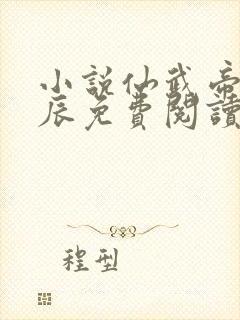 小說仙武帝
辰免費閱讀
程型